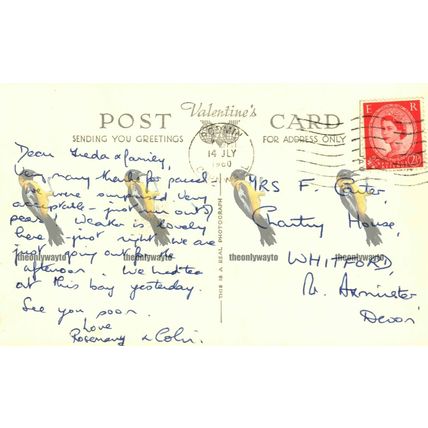 Valentine's
POST CARD
SENDING YOU GREETINGS
FOR ADDRESS ONLY
THIS IS A REAL PHOTOGRAPH
BODMIN
14 JLY
1960
E R
2½
Dear Freda & family,
Very many thanks for parcel
we were surprised Very
acceptable - just run out of
peas! Weather is lovely
here - just right. We are
just going out for the
afternoon. We had tea
at this bay yesterday.
See you soon.
Love
Rosemary & Colin.
MRS F. Carter,
House,
WHITFORD,
Nr. Axminster
Devon
theonlywayto
theonlywayto
theonlywayto
theonlywayto